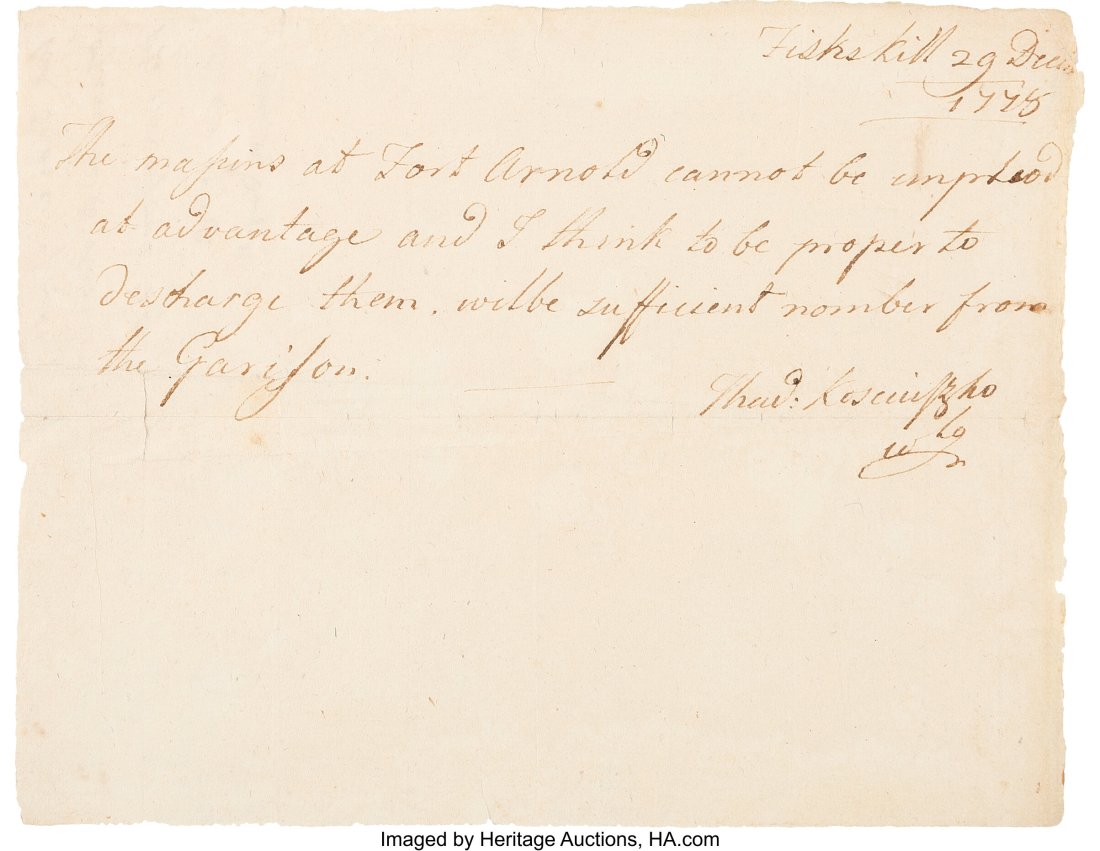 Fishskill 29 Decm
1778
The massins at Fort Arnold cannot be implood
at advantage and I think to be proper to
descharge them. wilbe sufficient nomber from
the Garisson.
Thad: Kosciuszko
Imaged by Heritage Auctions, HA.com